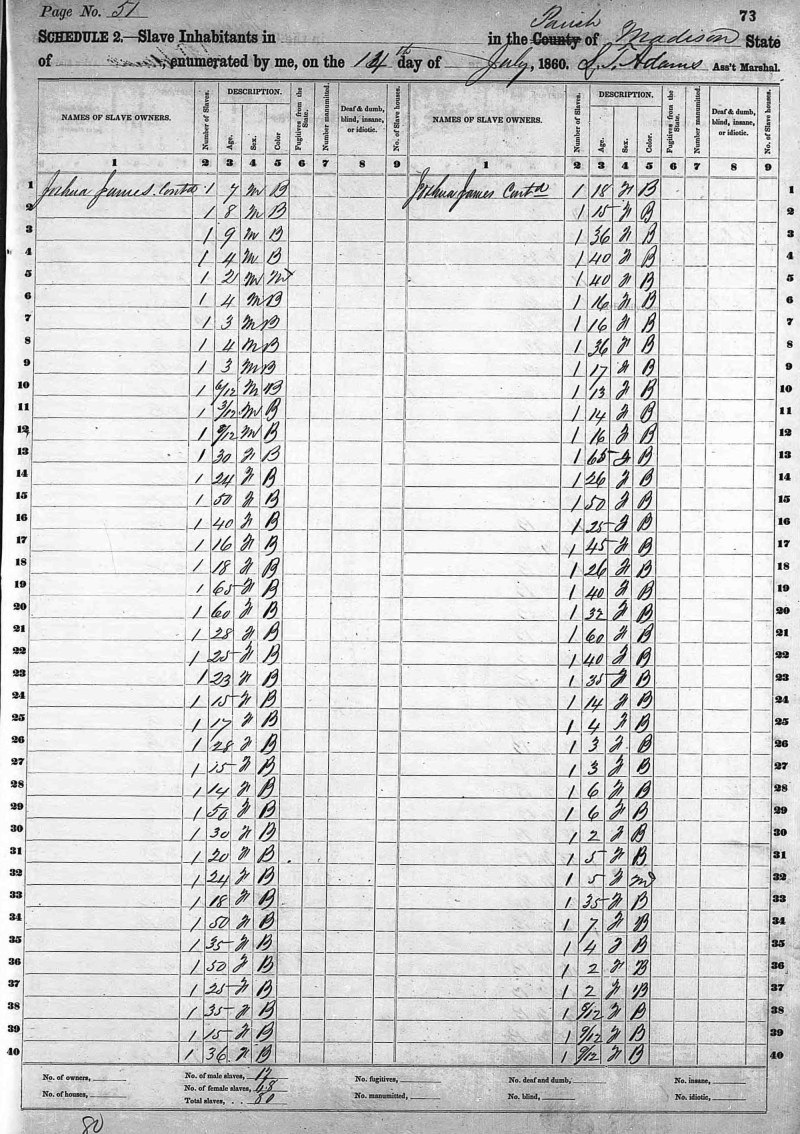 Page No. 51
73
Parish
SCHEDULE 2.—Slave Inhabitants in in the County of Madison State
of , enumerated by me, on the 14th day of July, 1860. Adams Ass't Marshal.
NAMES OF SLAVE OWNERS. Number of Slaves. DESCRIPTION. Age. Sex. Color Fugitives from the State. Number manumitted. Deaf & dumb, blind, insane, or idiotic. No. of Slave houses. NAMES OF SLAVE OWNERS. Number of Slaves. DESCRIPTION. Age. Sex. Color. Fugitives from the State. Number manumitted. Deaf & dumb, blind, insane, or idiotic. No. of Slave houses.
1 2 3 4 5 6 7 8 9 1 2 3 4 5 6 7 8 9
1 Joshua James Contd 1 7 M B Joshua James Contd 1 18 F B 1
2 1 8 M B 1 15 F B 2
3 1 9 M B 1 36 F B 3
4 1 4 M B 1 40 F B 4
5 1 2 M M 1 40 F B 5
6 1 4 M B 1 16 F B 6
7 1 3 M B 1 16 F B 7
8 1 4 M B 1 36 F B 8
9 1 3 M B 1 17 F B 9
10 1 6/12 M B 1 13 F B 10
11 1 3/12 M B 1 14 F B 11
12 1 /12 M B 1 16 F B 12
13 1 30 F B 1 65 F B 13
14 1 24 F B 1 26 F B 14
15 1 50 F B 1 50 F B 15
16 1 40 F B 1 25 F B 16
17 1 16 F B 1 45 F B 17
18 1 18 F B 1 26 F B 18
19 1 65 F B 1 40 F B 19
20 1 60 F B 1 32 F B 20
21 1 28 F B 1 60 F B 21
22 1 25 F B 1 40 F B 22
23 1 23 F B 1 35 F B 23
24 1 15 F B 1 14 F B 24
25 1 17 F B 1 4 F B 25
26 1 28 F B 1 3 F B 26
27 1 15 F B 1 3 F B 27
28 1 14 F B 1 6 F B 28
29 1 50 F B 1 6 F B 29
30 1 30 F B 1 2 F B 30
31 1 20 F B 1 5 F B 31
32 1 24 F B 1 5 F M 32
33 1 18 F B 1 35 F B 33
34 1 50 F B 1 7 F B 34
35 1 35 F B 1 4 F B 35
36 1 50 F B 1 2 F B 36
37 1 25 F B 1 2 F B 37
38 1 35 F B 1 /12 F B 38
39 1 15 F B 1 9/12 F B 39
40 1 36 F B 1 9/12 F B 40
No. of owners, No. of male slaves, 12 No. fugitives, No. deaf and dumb, No. insane,
No. of houses, No. of female slaves, 68 No. manumitted, No. blind, No. idiotic,
Total slaves, 80
80